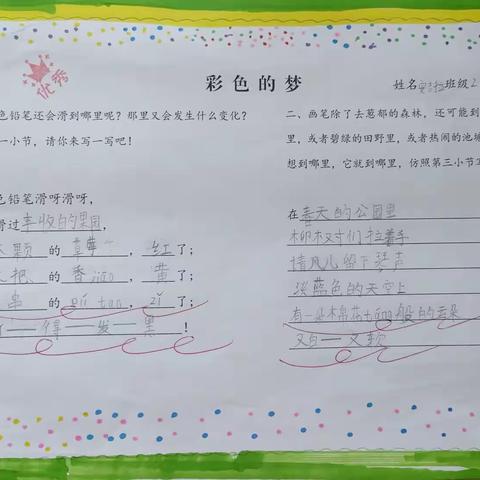 优秀
彩色的梦
姓名 班级2
色铅笔还会滑到哪里呢？那里又会发生什么变化？
一小节，请你来写一写吧！
色铅笔滑呀滑呀，
滑过丰收的果园，
颗的草莓，红了；
把的香jiāo，黄了；
串的pú tao，zǐ了；
得——发——黑！
二、画笔除了去葱郁的森林，还可能到
里，或者碧绿的田野里，或者热闹的池塘
想到哪里，它就到哪里，仿照第三小节
在春天的公园里
柳树们拉着手
请风儿留下琴声
在蓝色的天空上
有一朵棉花táng般的云朵
又白——又软